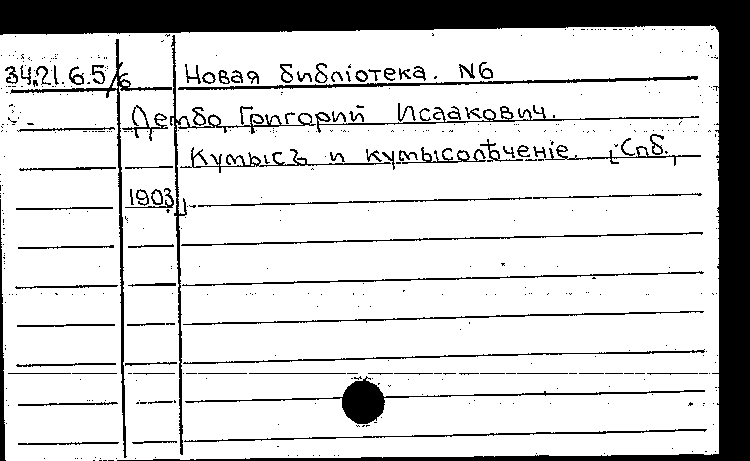 34.21.6.5/6 Новая библіотека. N6
Дембо, Григорий Исаакович.
Кумысъ и кумысолѣченіе. [Спб.,
1903].